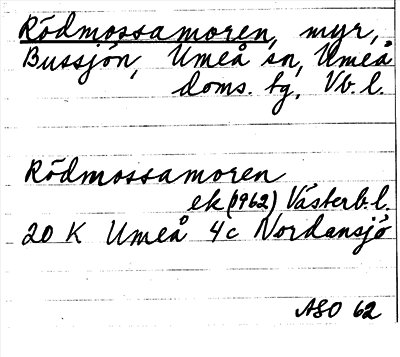 Rödmossamoren, myr,
Bussjön, Umeå sn, Umeå
doms. tg, Vb. l.
Rödmossamoren
ek (1962) Västerb. l.
20 K Umeå 4c Nordansjö
ASO 62